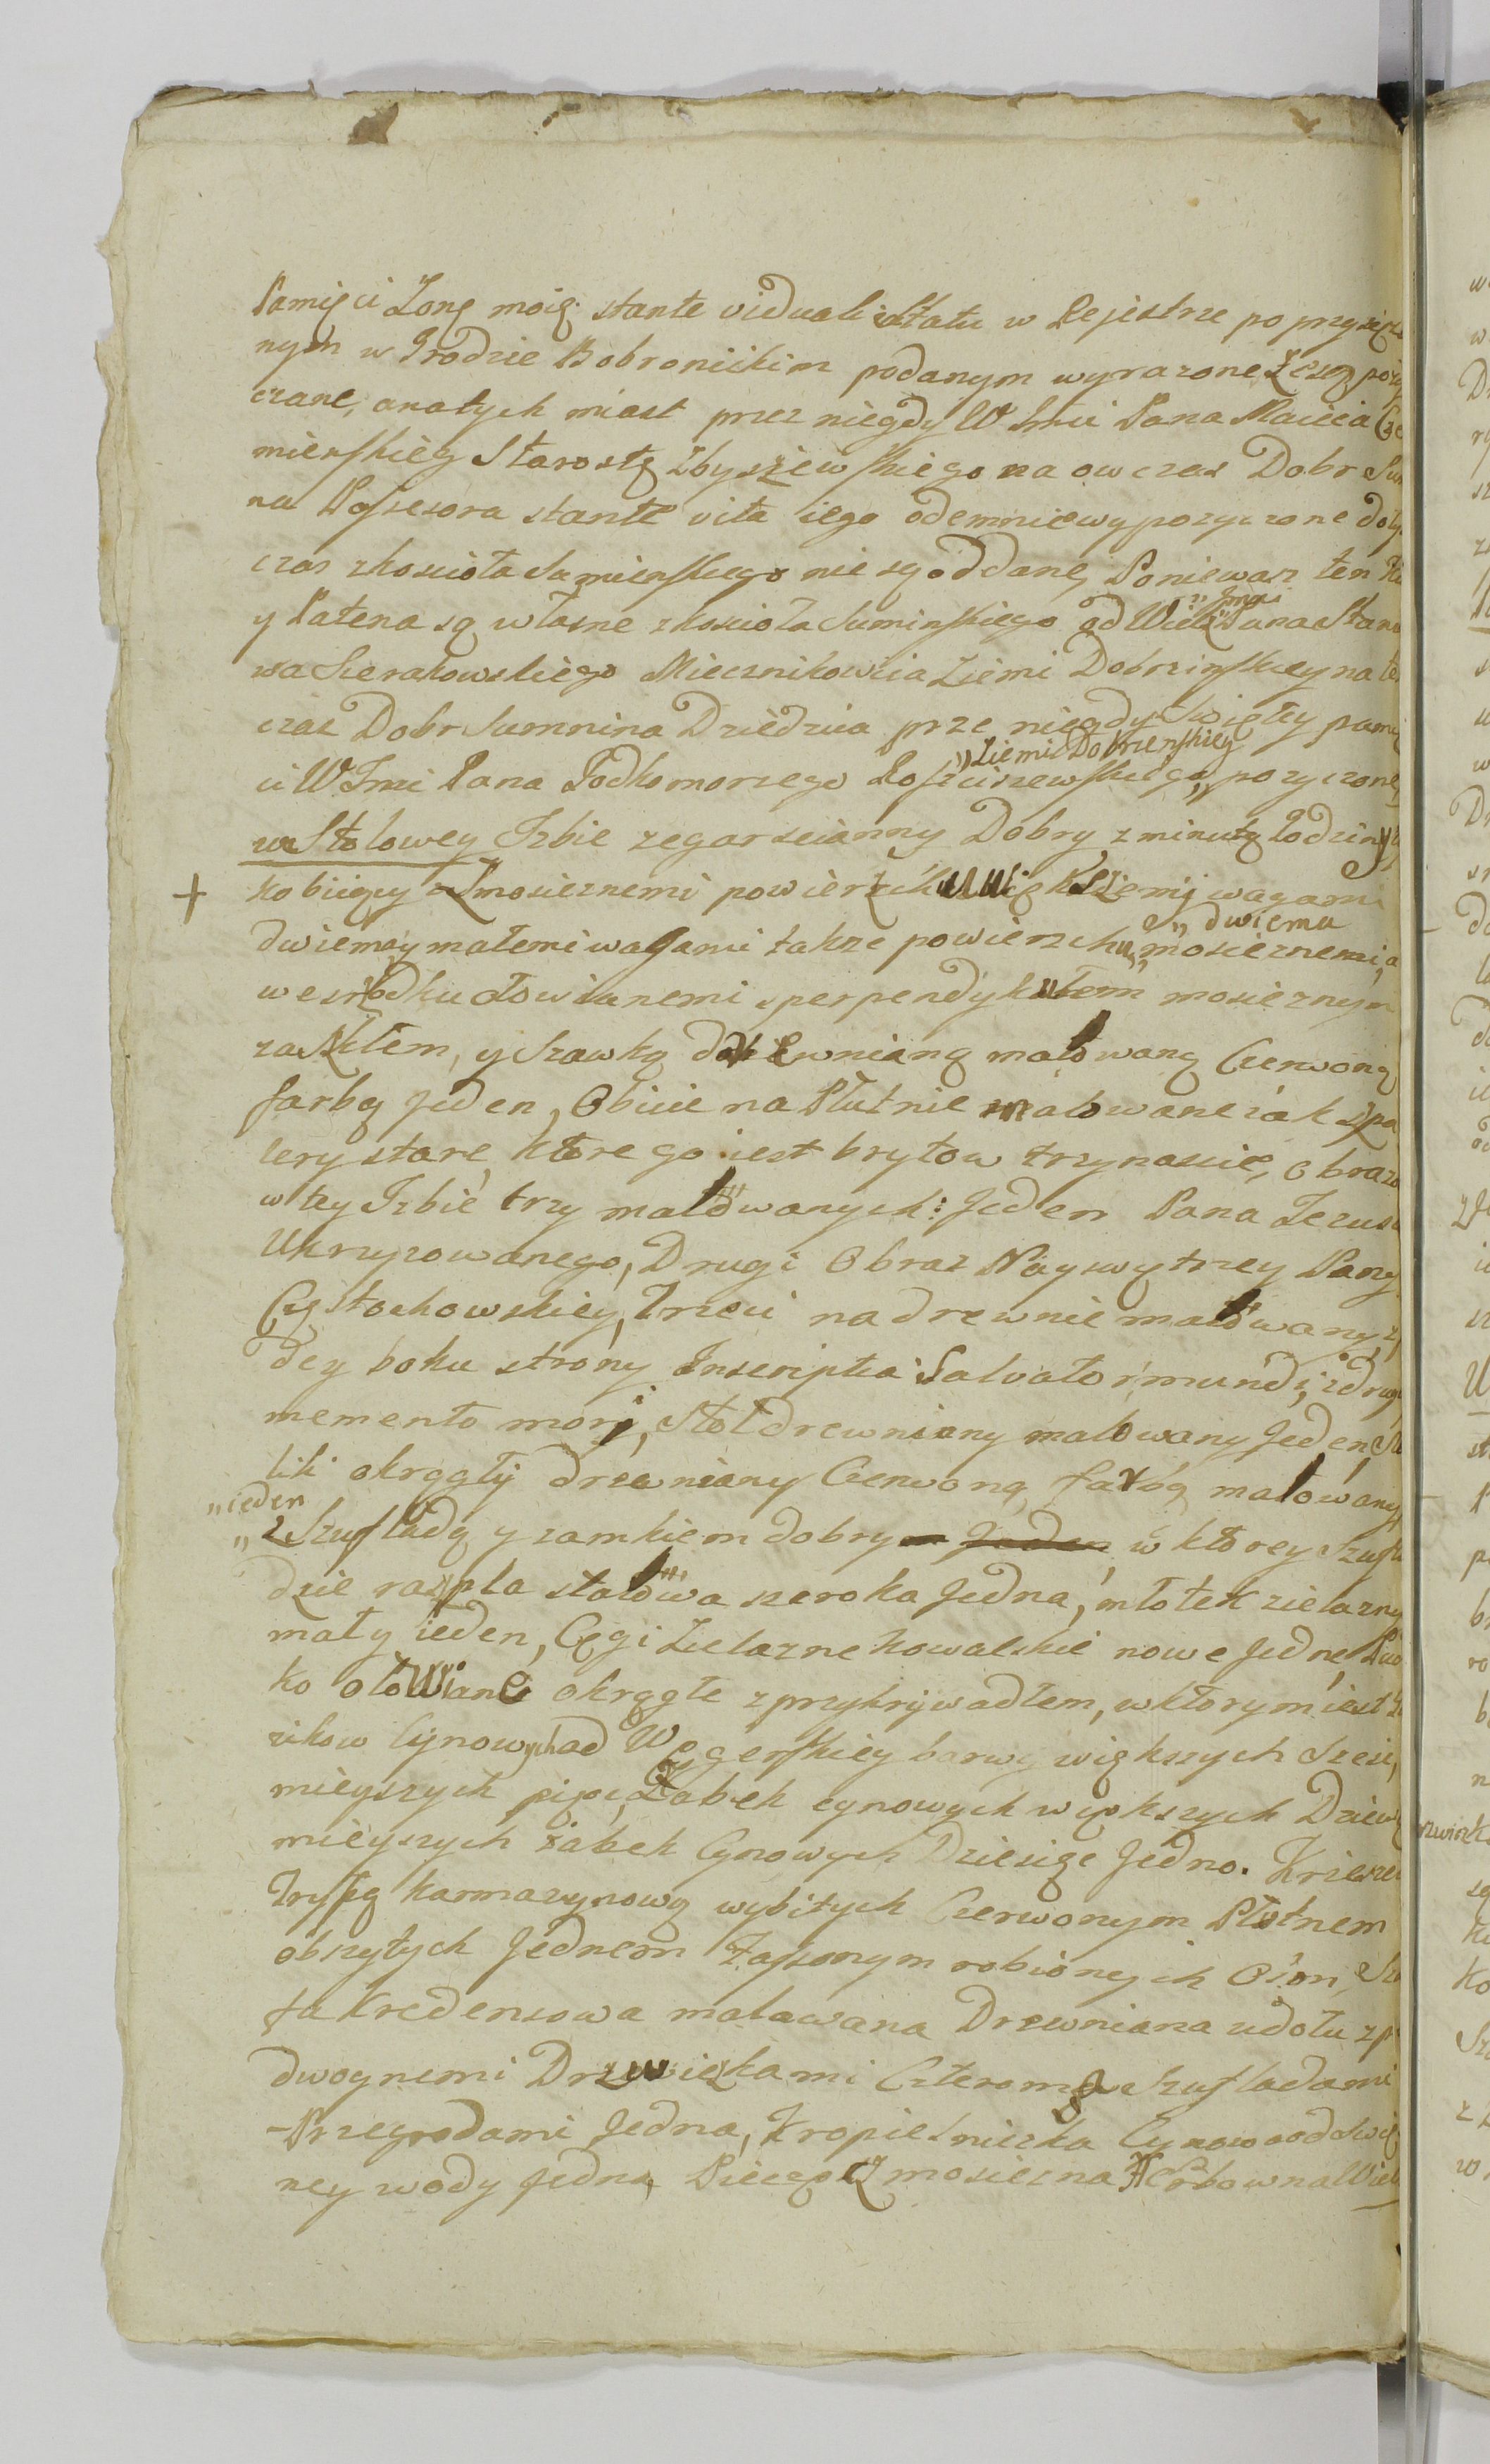 Pamięci Zonę moię stante viduali statu w Rejestrze poprzysięzo
nym w Grodzie Bobronickim podanym wyrazone ze są pozy
czane, a natych miast przez niegdy W Jmci Pana Macieia
mienskieg Starostę Zbyszewskiego na ow czas Dobr Sum
na Possesora stante vita iego odemnie wypozyczone doty
czas zkosciola Sumienskiego nie są oddane, Poniewasz ten
y Patena są własne zkosciola Suminskiego od Wielz „Jmci Pana Stani
wa Sierakowskiego Miecznikowicza Ziemi Dobrzinskiey na te
czas Dobr Sumnina Dziedzica prze niegdy Swiętey pamię
ci W Jmci Pana Podkomorzego Rosciszewskiego „Ziemi Dobrzenskiey„ pozyczone
w Stołowey Izbie zegar scianny Dobry z minutą Godzin
+ ko biiący z mosieznemi powierzchu większemi wagami
dwiema, y małemi wagami takze powierzchu „dwiema mosieznemi, a
wesrodku ołowianemi z perpendykułem mosieznym
za Szkłem, y Szawką drewnianą malowaną Czerwoną
farbą Jeden, Obicie na Płutnie malowane iak szpa
lery stare, ktorego iest brytow trzynascie, Obrazo
w tey Izbie trzy malowanych: Jeden Pana Jezusa
Ukrzyzowanego, Drugi Obraz Nayswytrzey Pany
Częstochowskiey, Trzeci na drewnie malowany, z
dey boku strony Inscriptia Salvator mundi, zdrug
memento mori, Stoł drewniany malowany Jeden, Sto
lik okrągły drewniany Czerwoną farbą malowany
„ieden
„z Szufladą y zamkiem dobrym Jeden w ktorey Szufla
dzie raszpla stalowa szeroka Jedna, młotek zielazny
mały ieden, Cęgi Zielazne kowalskie nowe Jedne, Pud
ko ołowiane okrągłe z przykrywadłem, w ktorym iest
zikow Cynowych od Węgerskiey barwy większych Szesc,
mieyszych pięc, Zabek cynowych większych Dziewię
mieyszych zabek Cynowych Dziesięc Jedno. Krzeseł
Trypą karmazynową wybitych Czerwonym Płotnem
obszytych Jednem Fassonym robionych Osm, Sza
fa Kredensowa malowana Drewniana u dołu z p
dwoynemi Drzwiczkami Czteroma Szufladami
Przegrodami Jedna, Kropielniczka Cynowa od Swię
ney wody Jedna, Pieczęc mosiezna Herbowna Wiel